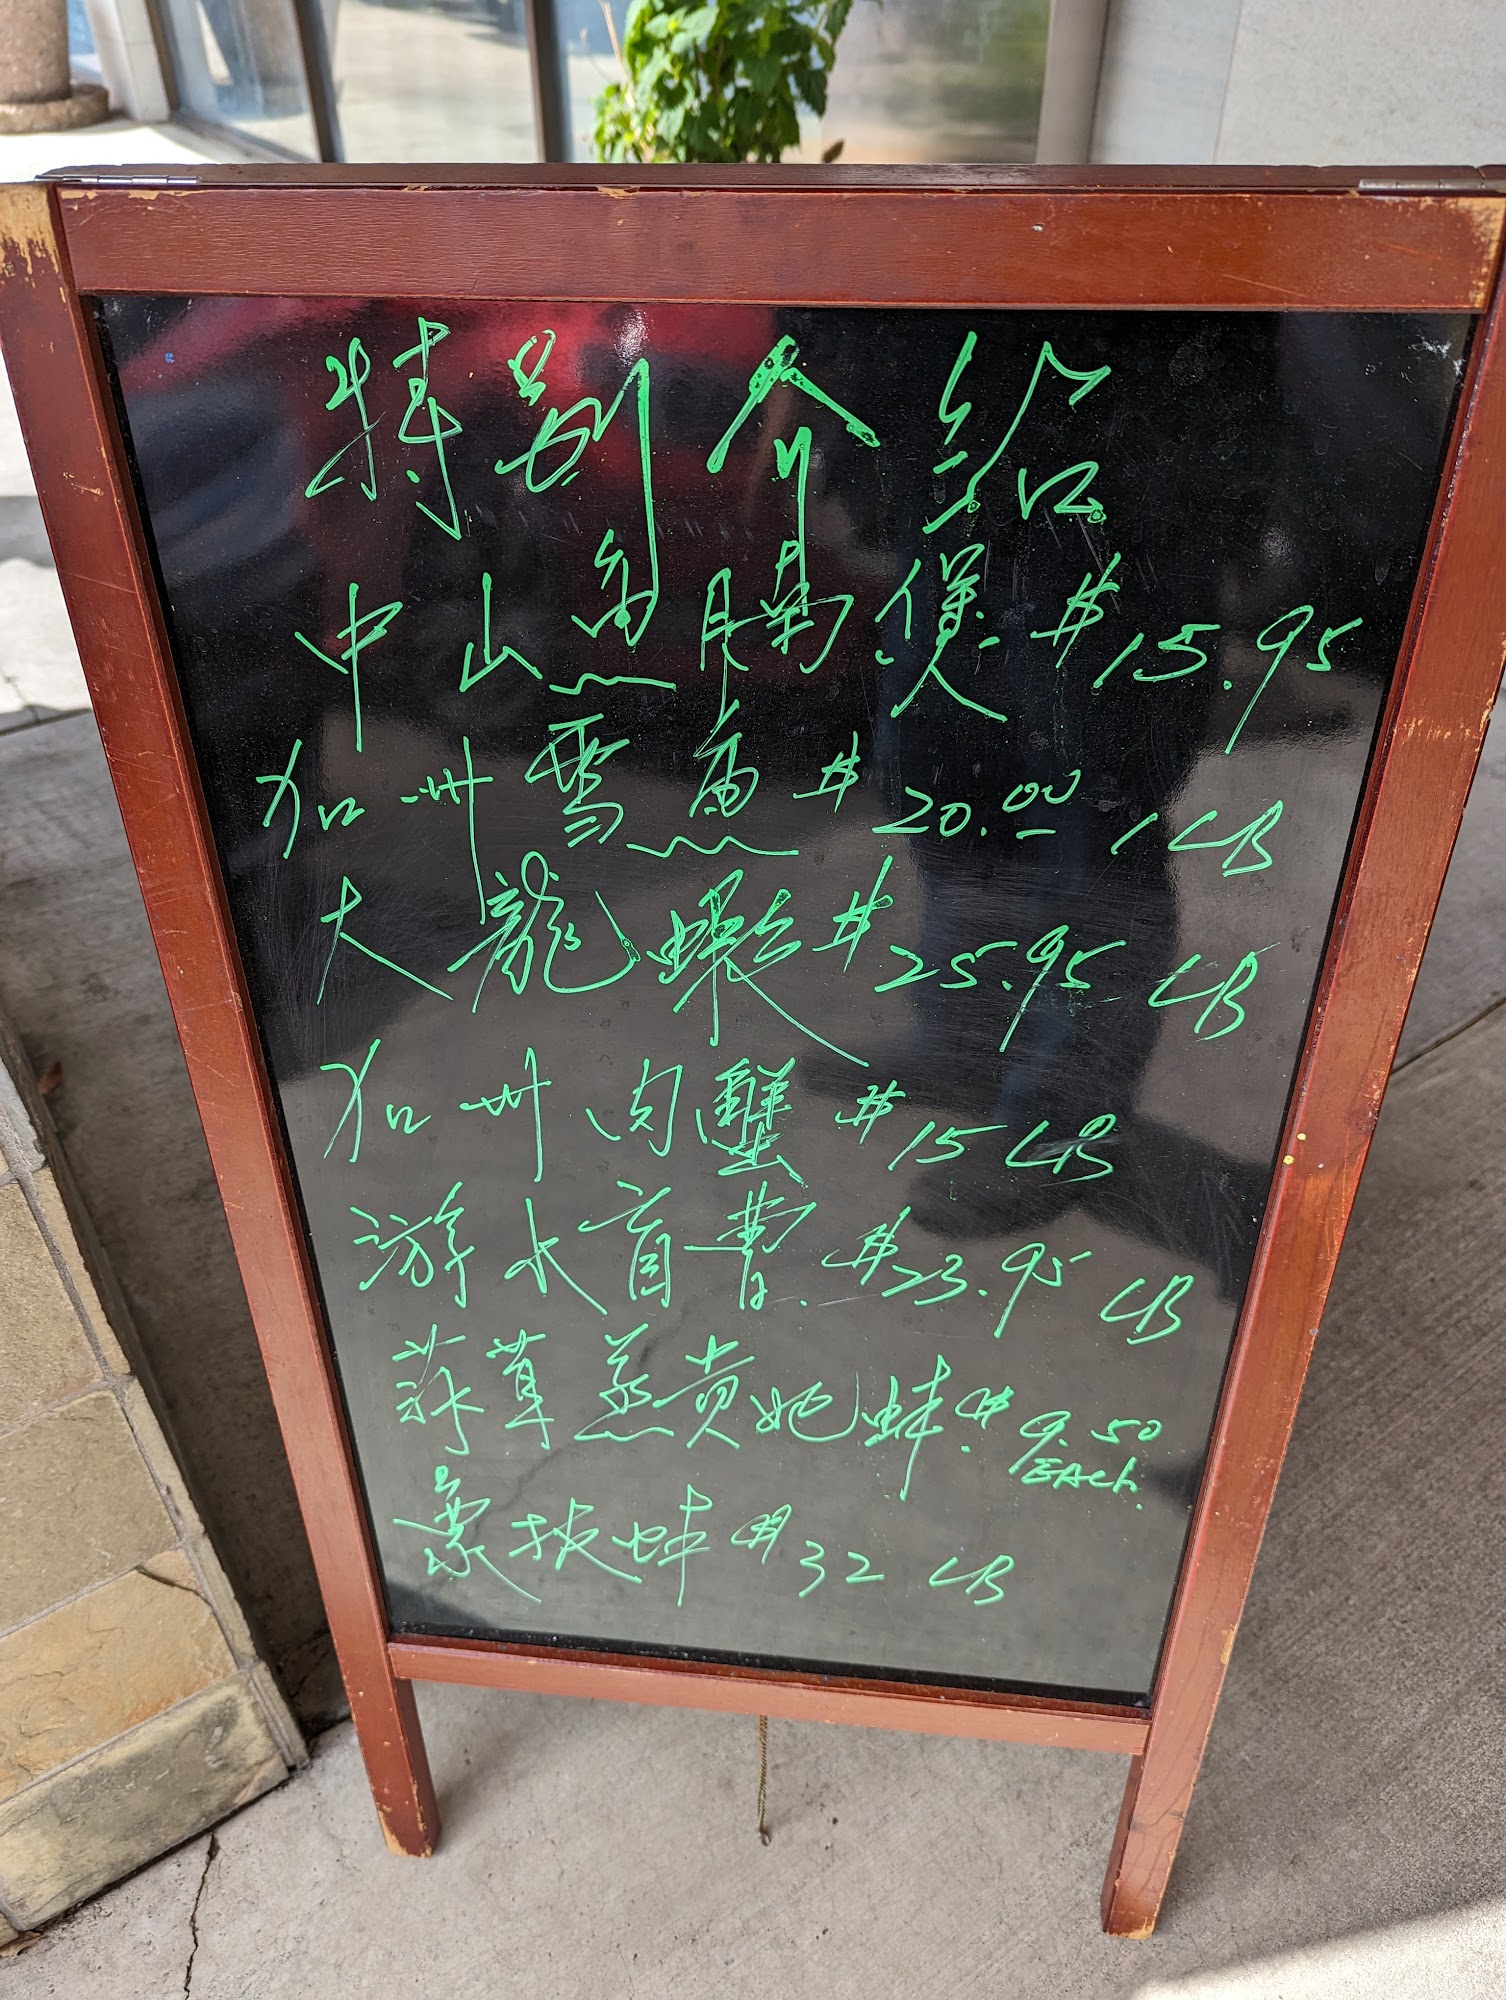 特别介紹
中山魚腩煲 $15.95
加州雪魚 $20.00 1LB
大龍蝦 $25.95 LB
加州肉蟹 $15 LB
游水盲曹 $23.95 LB
蒸貴妃蚌 $9.50
EAch.
象拔蚌 $32 LB